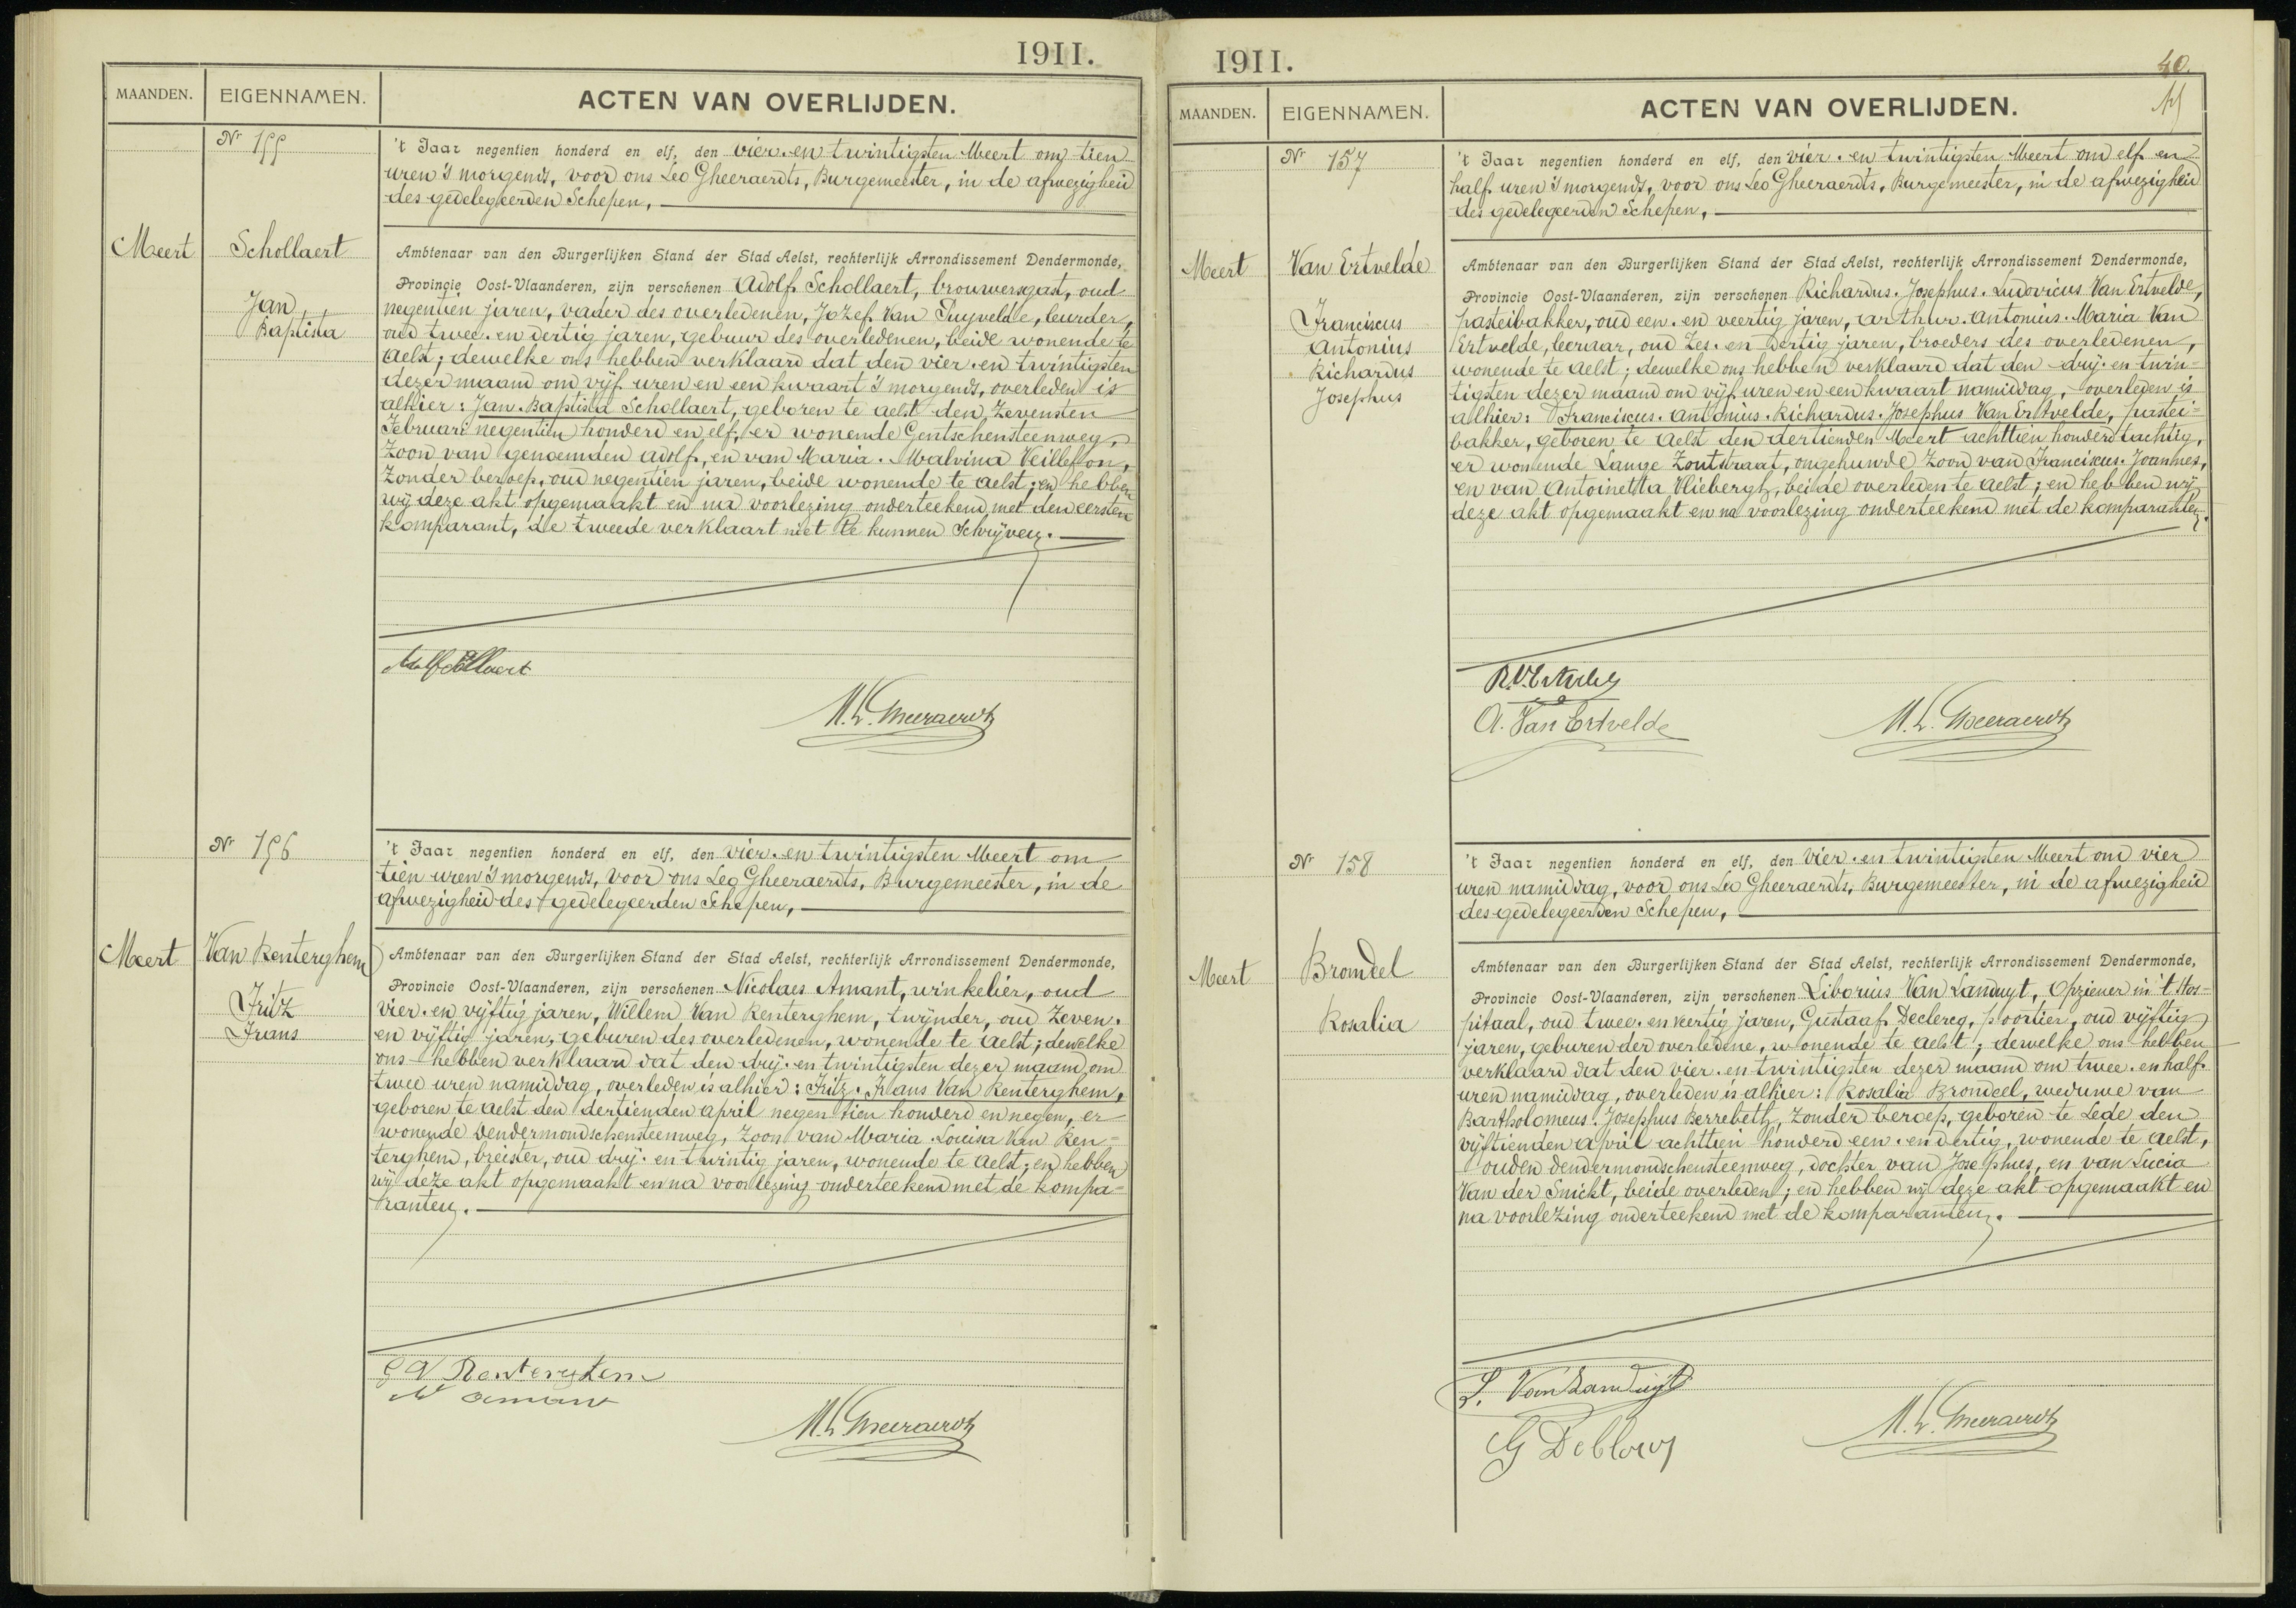 1911.
MAANDEN. EIGENNAMEN. ACTEN VAN OVERLIJDEN.
Nr 155
't Jaar negentien honderd en elf, den vier-en twintigsten Meert om tien
uren 's morgends, voor ons Leo Gheeraerdts, Burgemeester, in de afwezigheid
des gedelegeerden Schepen,
Meert Schollaert
Jan
Baptista
Ambtenaar van den Burgerlijken Stand der Stad Aelst, rechterlijk Arrondissement Dendermonde,
Provincie Oost-Vlaanderen, zijn verschenen Adolf Schollaert, brouwersgast, oud
negentien jaren, vader des overledenen, Jozef Van Puyvelde, leurder,
oud twee-en dertig jaren, gebuur des overledenen, beide wonende te
Aelst; dewelke ons hebben verklaard dat den vier-en twintigsten
dezer maand om vijf uren en een kwaart 's morgends, overleden is
alhier: Jan-Baptista Schollaert, geboren te Aelst den zevensten
Februari negentien honderd en elf, er wonende Gentschensteenweg,
zoon van genoemden Adolf, en van Maria-Malvina Veillefon,
zonder beroep, oud negentien jaren, beide wonende te Aelst; en hebben
wij deze akt opgemaakt en na voorlezing onderteekend met den eersten
komparant, de tweede verklaart niet te kunnen schrijven.
Adolf Schollaert
M. L. Gheeraerdts
Nr 156
't Jaar negentien honderd en elf, den vier-en twintigsten Meert om
tien uren 's morgends, voor ons Leo Gheeraerdts, Burgemeester, in de
afwezigheid des gedelegeerden Schepen,
Meert Van Renterghem
Fritz
Frans
Ambtenaar van den Burgerlijken Stand der Stad Aelst, rechterlijk Arrondissement Dendermonde,
Provincie Oost-Vlaanderen, zijn verschenen Nicolaes Amant, winkelier, oud
vier-en vijftig jaren, Willem Van Renterghem, twijnder, oud zeven-
en vijftig jaren, geburen des overledenen, wonende te Aelst; dewelke
ons hebben verklaard dat den drij-en twintigsten dezer maand om
twee uren namiddag, overleden is alhier: Fritz-Frans Van Renterghem,
geboren te Aelst den dertienden April negentien honderd en negen, er
wonende Dendermondschensteenweg, zoon van Maria-Louisa Van Ren-
terghem, breister, oud drij-en twintig jaren, wonende te Aelst; en hebben
wij deze akt opgemaakt en na voorlezing onderteekend met de kompa-
ranten.
G V Renterghem
N Amant
M. L. Gheeraerdts
1911.
40.
MAANDEN. EIGENNAMEN. ACTEN VAN OVERLIJDEN.
Nr 157
't Jaar negentien honderd en elf, den vier-en twintigsten Meert om elf en
half uren 's morgends, voor ons Leo Gheeraerdts, Burgemeester, in de afwezigheid
des gedelegeerden Schepen,
Meert Van Ertvelde
Franciscus
Antonius
Richardus
Josephus
Ambtenaar van den Burgerlijken Stand der Stad Aelst, rechterlijk Arrondissement Dendermonde,
Provincie Oost-Vlaanderen, zijn verschenen Richardus-Josephus-Ludovicus Van Ertvelde,
pasteibakker, oud een-en veertig jaren, Arthur-Antonius-Maria Van
Ertvelde, leeraar, oud zes-en dertig jaren, broeders des overledenen,
wonende te Aelst; dewelke ons hebben verklaard dat den drij-en twin-
tigsten dezer maand om vijf uren en een kwaart namiddag, overleden is
alhier: Franciscus-Antonius-Richardus-Josephus Van Ertvelde, pastei-
bakker, geboren te Aelst den dertienden Meert achttien honderd tachtig,
er wonende Lange Zoutstraat, ongehuwde zoon van Franciscus-Joannes,
en van Antoinetta Vliebergh, beide overleden te Aelst; en hebben wij
deze akt opgemaakt en na voorlezing onderteekend met de komparanten.
R. V. Ertvelde
A. Van Ertvelde
M. L. Gheeraerdts
Nr 158
't Jaar negentien honderd en elf, den vier-en twintigsten Meert om vier
uren namiddag, voor ons Leo Gheeraerdts, Burgemeester, in de afwezigheid
des gedelegeerden Schepen,
Meert Brondel
Rosalia
Ambtenaar van den Burgerlijken Stand der Stad Aelst, rechterlijk Arrondissement Dendermonde,
Provincie Oost-Vlaanderen, zijn verschenen Liborius Van Landuyt, opziener in 't Hos-
pitaal, oud twee-en veertig jaren, Gustaaf Declercq, poortier, oud vijftig
jaren, geburen der overledene, wonende te Aelst; dewelke ons hebben
verklaard dat den vier-en twintigsten dezer maand om twee-en half
uren namiddag, overleden is alhier: Rosalia Brondeel, weduwe van
Bartholomeus-Josephus Berrebeth, zonder beroep, geboren te Lede den
vijftienden April achttien honderd een-en dertig, wonende te Aelst,
ouden dendermondschensteenweg, dochter van Josephus, en van Lucia
Van der Snickt, beide overleden; en hebben wij deze akt opgemaakt en
na voorlezing onderteekend met de komparanten.
L. Van Landuyt
G Declercq
M. L. Gheeraerdts